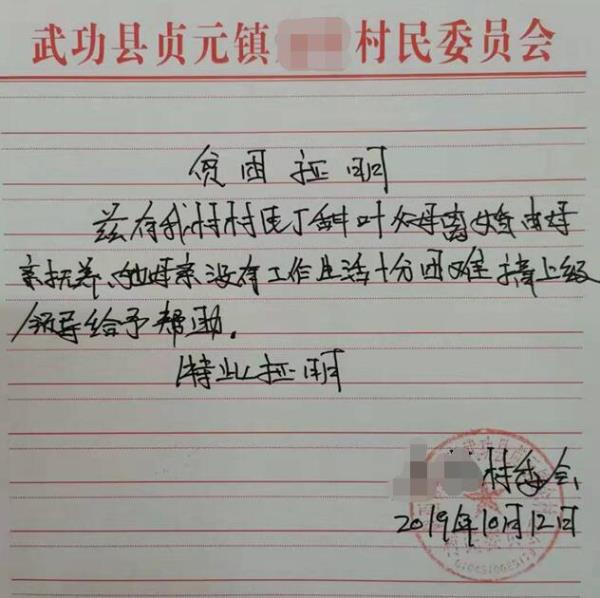 武功县贞元镇 村民委员会
贫困证明
兹有我村村民丁 叶 父母离婚由母
亲抚养、她母亲没有工作生活十分困难 请上级
领导给予帮助。
特此证明
村委会
2019年10月12日